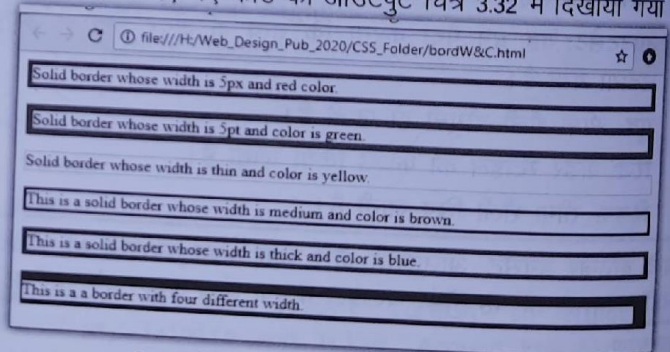 आउटपुट चित्र 3.32 में दिखाया गया
file:///H:/Web_Design_Pub_2020/CSS_Folder/bordW&C.html
Solid border whose width is 5px and red color.
Solid border whose width is 5pt and color is green.
Solid border whose width is thin and color is yellow.
This is a solid border whose width is medium and color is brown.
This is a solid border whose width is thick and color is blue.
This is a a border with four different width.